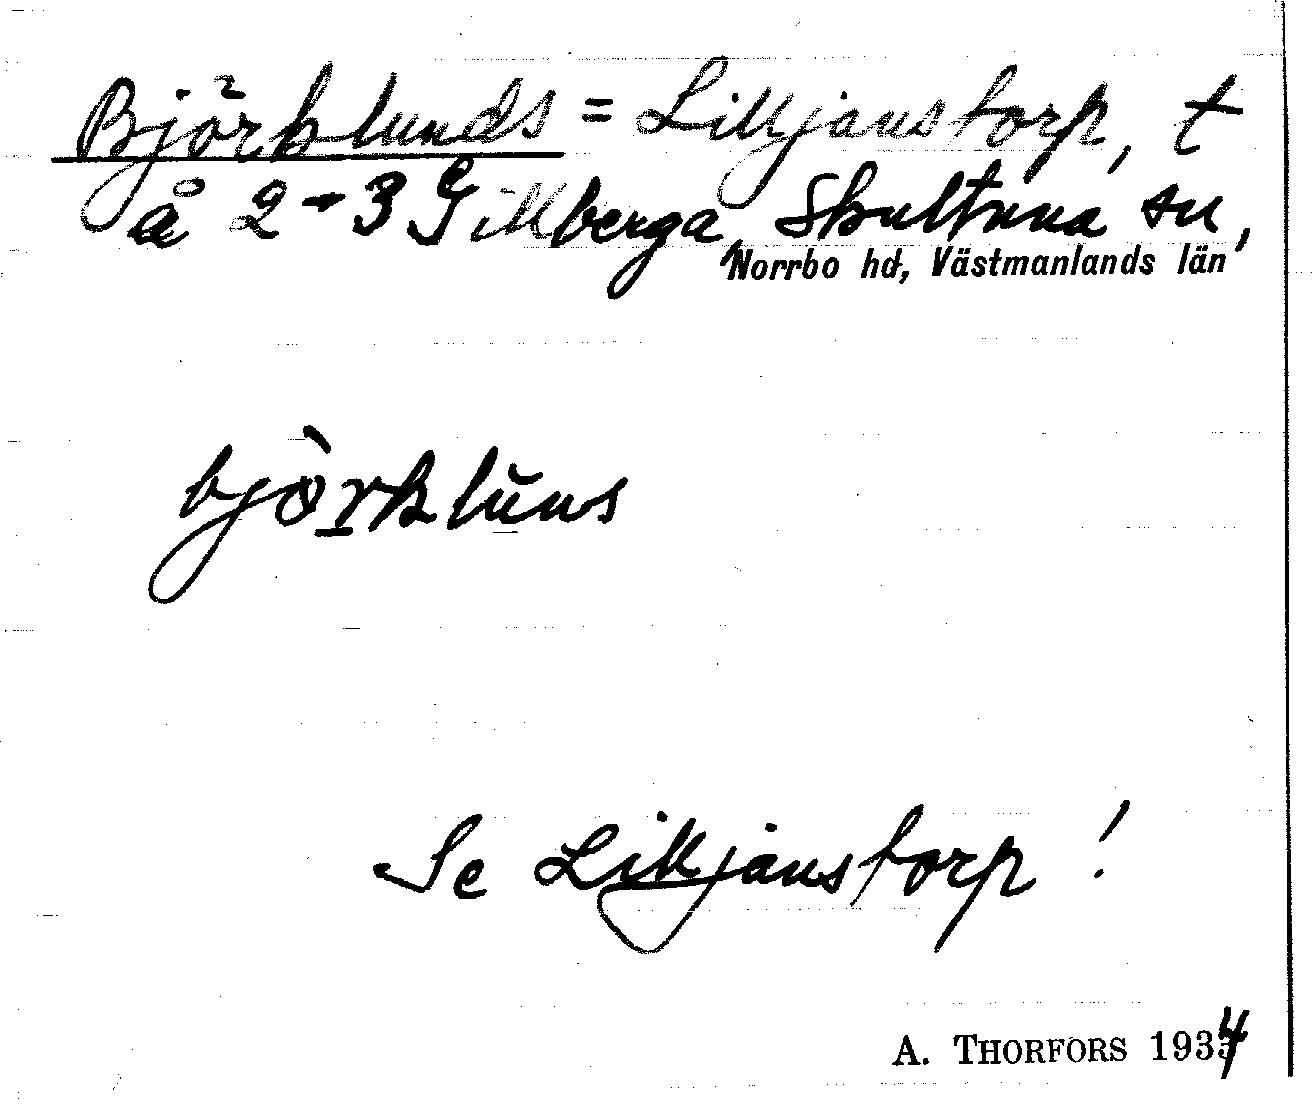 Björklunds = Lilljanstorp, t
å 2-3 Gillberga, Skultuna sn,
Norrbo hd, Västmanlands län
bjòrklŭns
Se Lilljanstorp!
A. THORFORS 1934